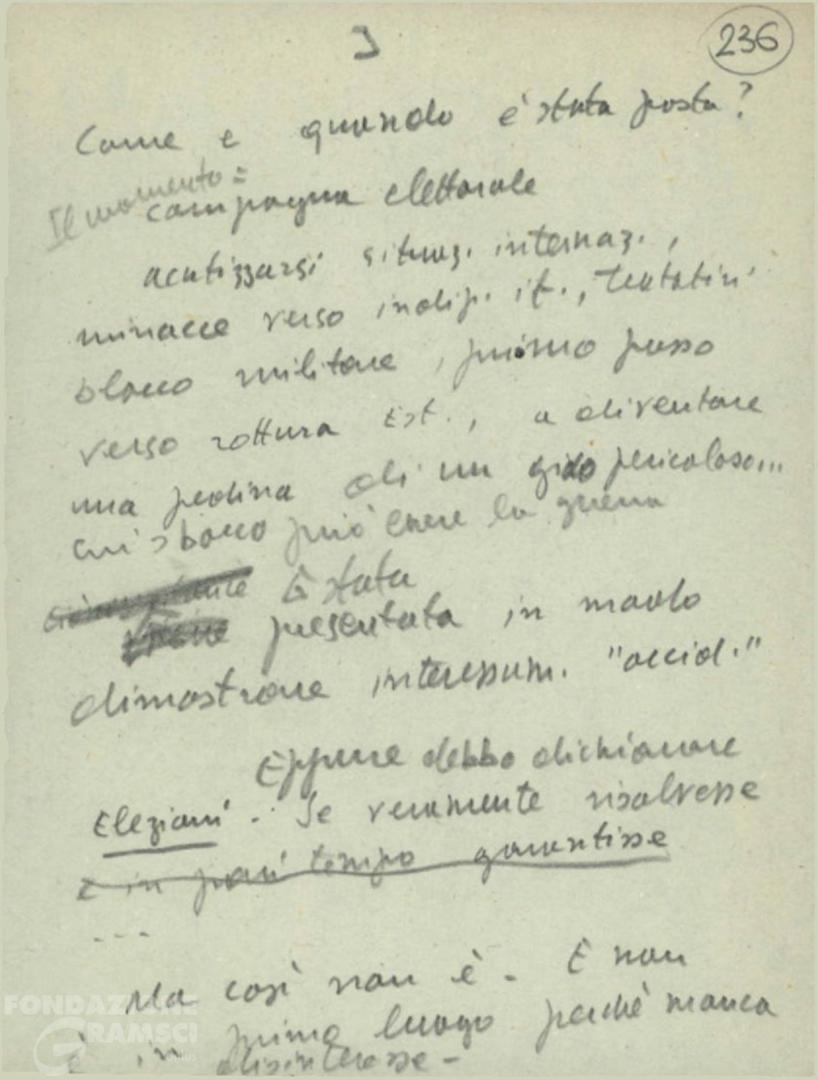 3
236
Come e quando è stata posta?
Il momento =
campagna elettorale
acutizzarsi situaz. internaz.,
minacce verso indip. it., tentativi
blocco militare, primo passo
verso rottura Est., a diventare
una pedina di un gioco pericoloso...
cui sbocco può essere la guerra
È stata
presentata in modo
dimostrare interessam. "occid."
Eppure debbo dichiarare
Elezioni - Se veramente risolvesse
e in pari tempo garantisse
...
Ma così non è. E non
è in primo luogo perchè manca
disinteresse -
FONDAZIONE
GRAMSCI